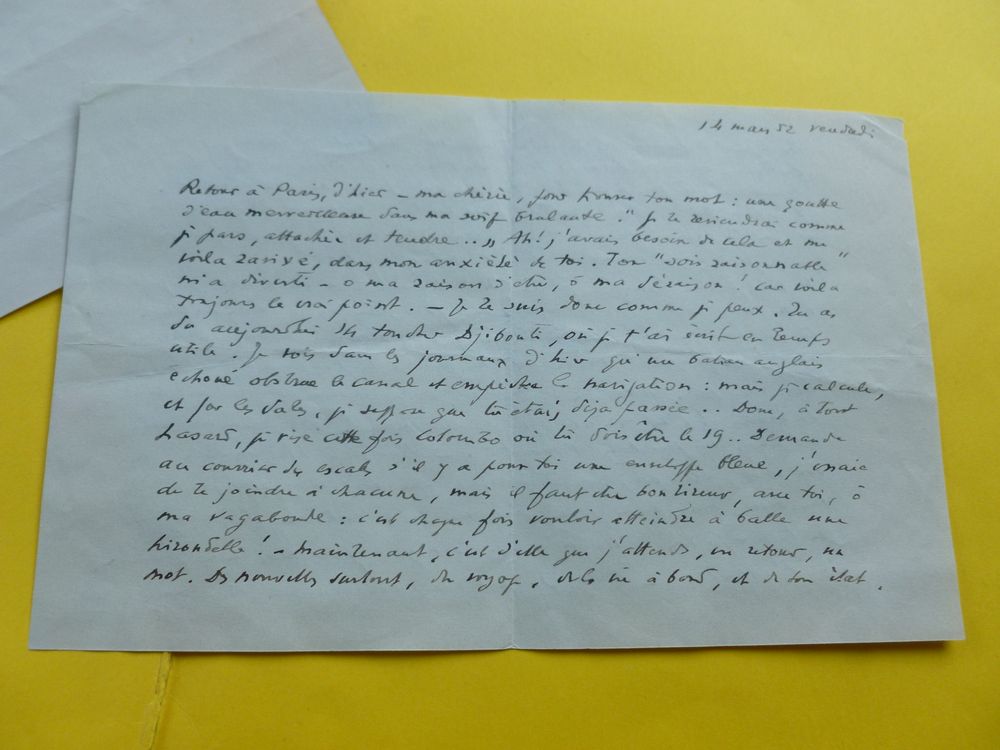 14 mars 52 vendredi
Retour à Paris, d'hier – ma chérie, pour trouver ton mot : une goutte
d'eau merveilleuse dans ma soif brulante. "Je te reviendrai comme
je pars, attachée et tendre.. „ Ah! j'avais besoin de cela et me
voilà ravivé, dans mon anxiété de toi. Ton "sois raisonnable"
m'a diverti – ô ma raison d'être, ô ma déraison ! car voilà
toujours le vrai point. – Je te suis donc comme je peux. Tu as
du aujourd'hui 14 toucher Djibouti, où je t'ai écrit en temps
utile. Je vois dans les journaux d'hier qu'un bateau anglais
echoué obstrue le canal et empêche la navigation : mais je calcule,
et par les dates, je suppose que tu étais déjà passée.. Donc, à tout
hasard, je vise cette fois Colombo où tu dois être le 19.. Demande
au courrier des escales s'il y a pour toi une enveloppe bleue, j'essaie
de te joindre à chacune, mais il faut être bon tireur, avec toi, ô
ma vagabonde : c'est chaque fois vouloir atteindre à balle une
hirondelle ! – Maintenant, c'est d'elle que j'attends, en retour, un
mot. Des nouvelles surtout, du voyage, de la vie à bord, et de ton état.